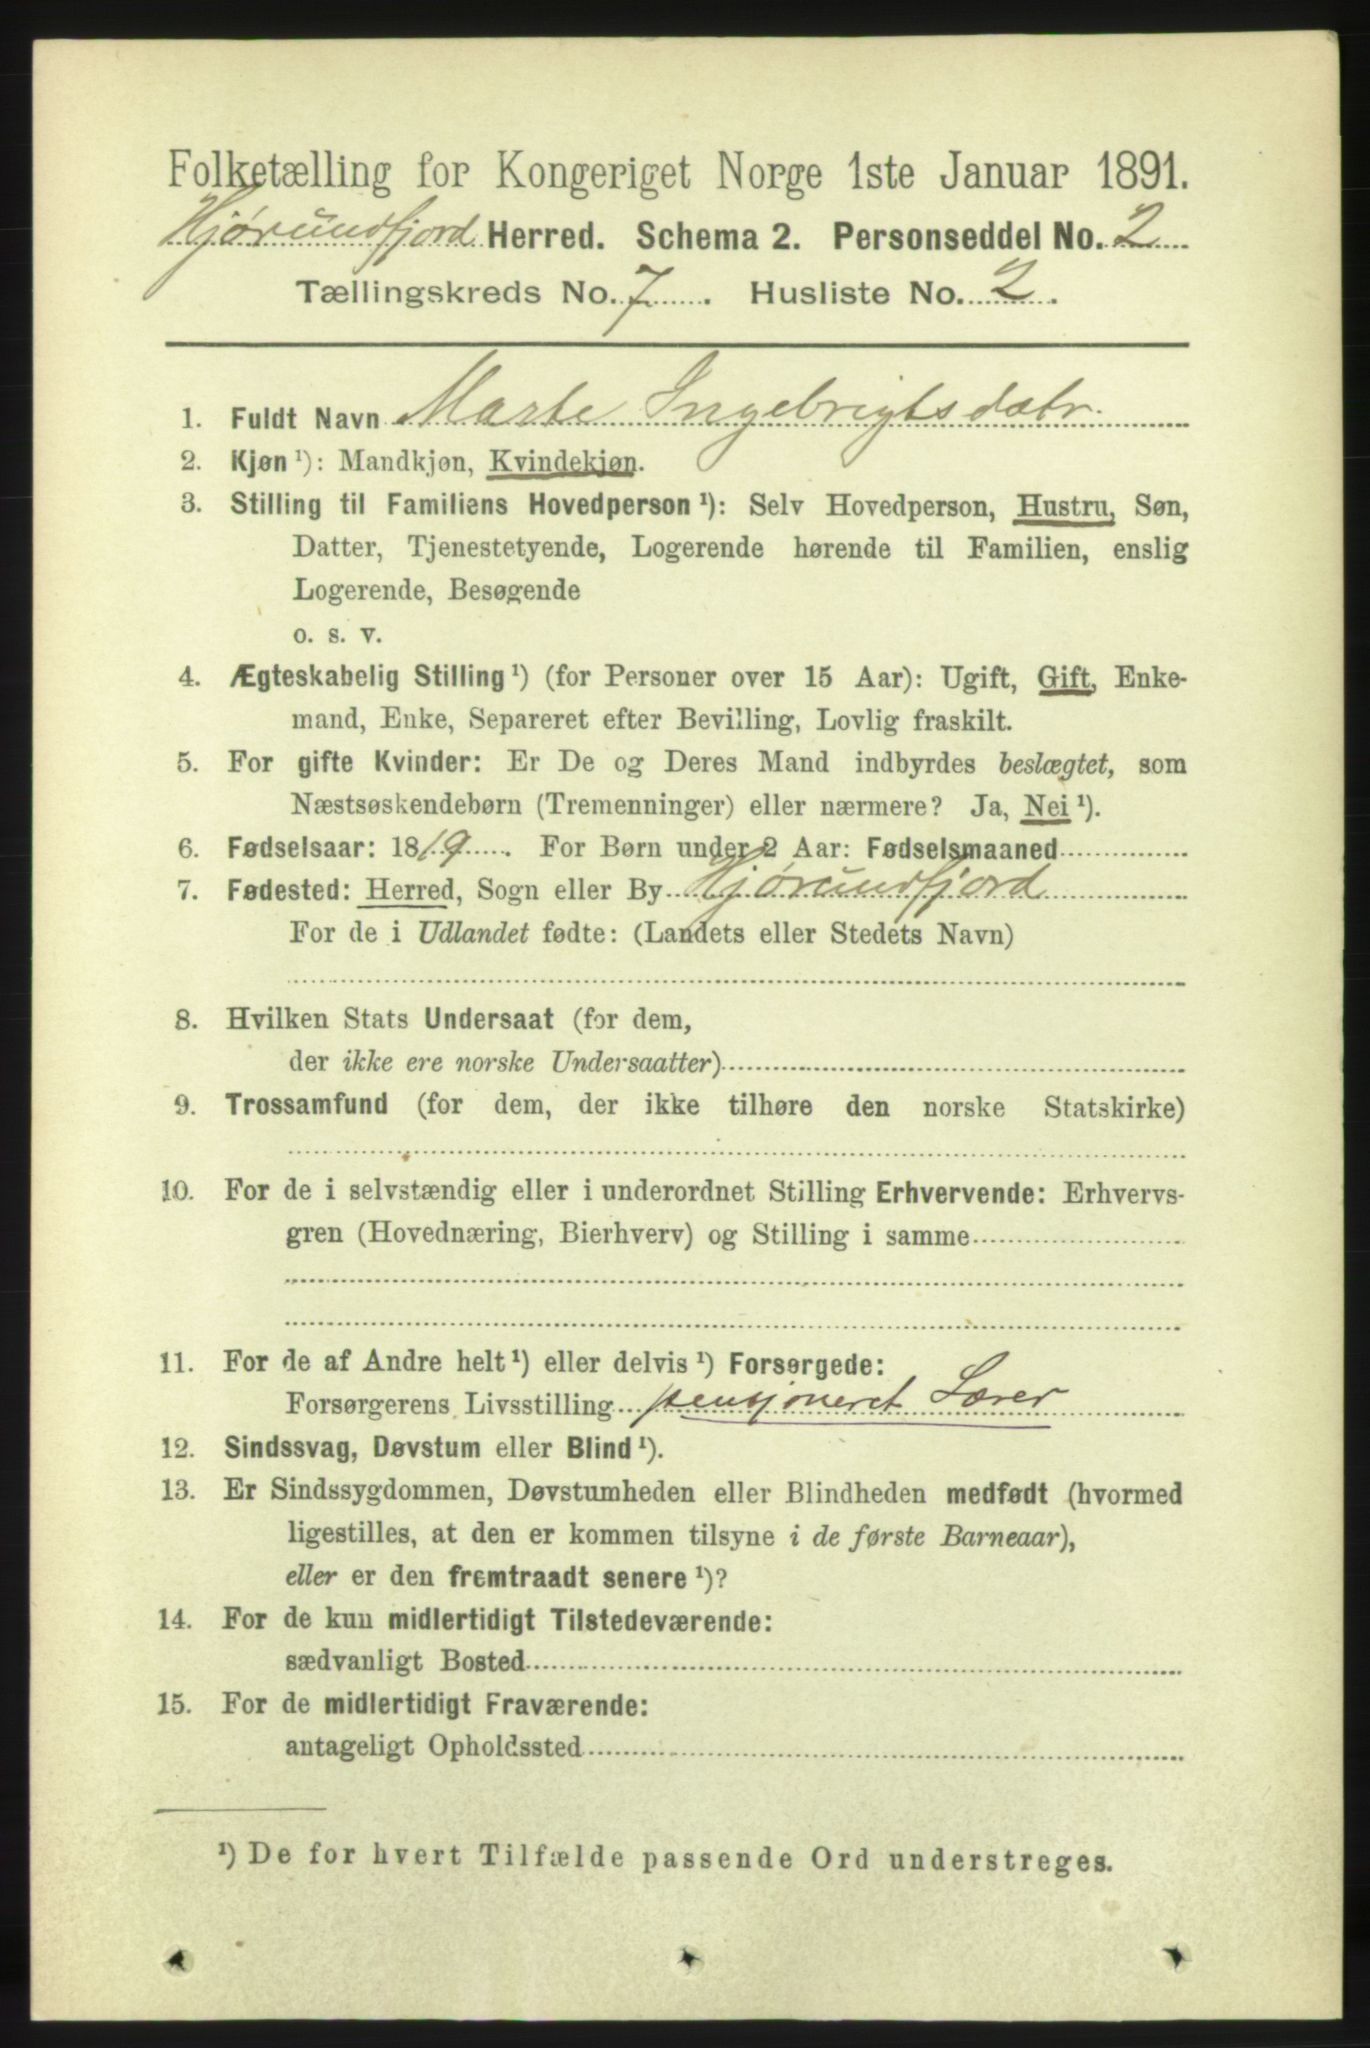 Folketælling for Kongeriget Norge 1ste Januar 1891.
Hjørundfjord Herred. Schema 2. Personseddel No. 2
Tællingskreds No. 7. Husliste No. 2.
1. Fuldt Navn Marte Ingebrigtsdatr.
2. Kjøn ¹): Mandkjøn, Kvindekjøn.
3. Stilling til Familiens Hovedperson ¹): Selv Hovedperson, Hustru, Søn,
Datter, Tjenestetyende, Logerende hørende til Familien, enslig
Logerende, Besøgende
o. s. v.
4. Ægteskabelig Stilling ¹) (for Personer over 15 Aar): Ugift, Gift, Enke-
mand, Enke, Separeret efter Bevilling, Lovlig fraskilt.
5. For gifte Kvinder: Er De og Deres Mand indbyrdes beslægtet, som
Næstsøskendebørn (Tremenninger) eller nærmere? Ja, Nei ¹).
6. Fødselsaar: 1819. For Børn under 2 Aar: Fødselsmaaned
7. Fødested: Herred, Sogn eller By Hjørundfjord
For de i Udlandet fødte: (Landets eller Stedets Navn)
8. Hvilken Stats Undersaat (for dem,
der ikke ere norske Undersaatter)
9. Trossamfund (for dem, der ikke tilhøre den norske Statskirke)
10. For de i selvstændig eller i underordnet Stilling Erhvervende: Erhvervs-
gren (Hovednæring, Bierhverv) og Stilling i samme
11. For de af Andre helt ¹) eller delvis ¹) Forsørgede:
Forsørgerens Livsstilling pensjoneret Lærer
12. Sindssvag, Døvstum eller Blind ¹).
13. Er Sindssygdommen, Døvstumheden eller Blindheden medfødt (hvormed
ligestilles, at den er kommen tilsyne i de første Barneaar),
eller er den fremtraadt senere ¹)?
14. For de kun midlertidigt Tilstedeværende:
sædvanligt Bosted
15. For de midlertidigt Fraværende:
antageligt Opholdssted
¹) De for hvert Tilfælde passende Ord understreges.